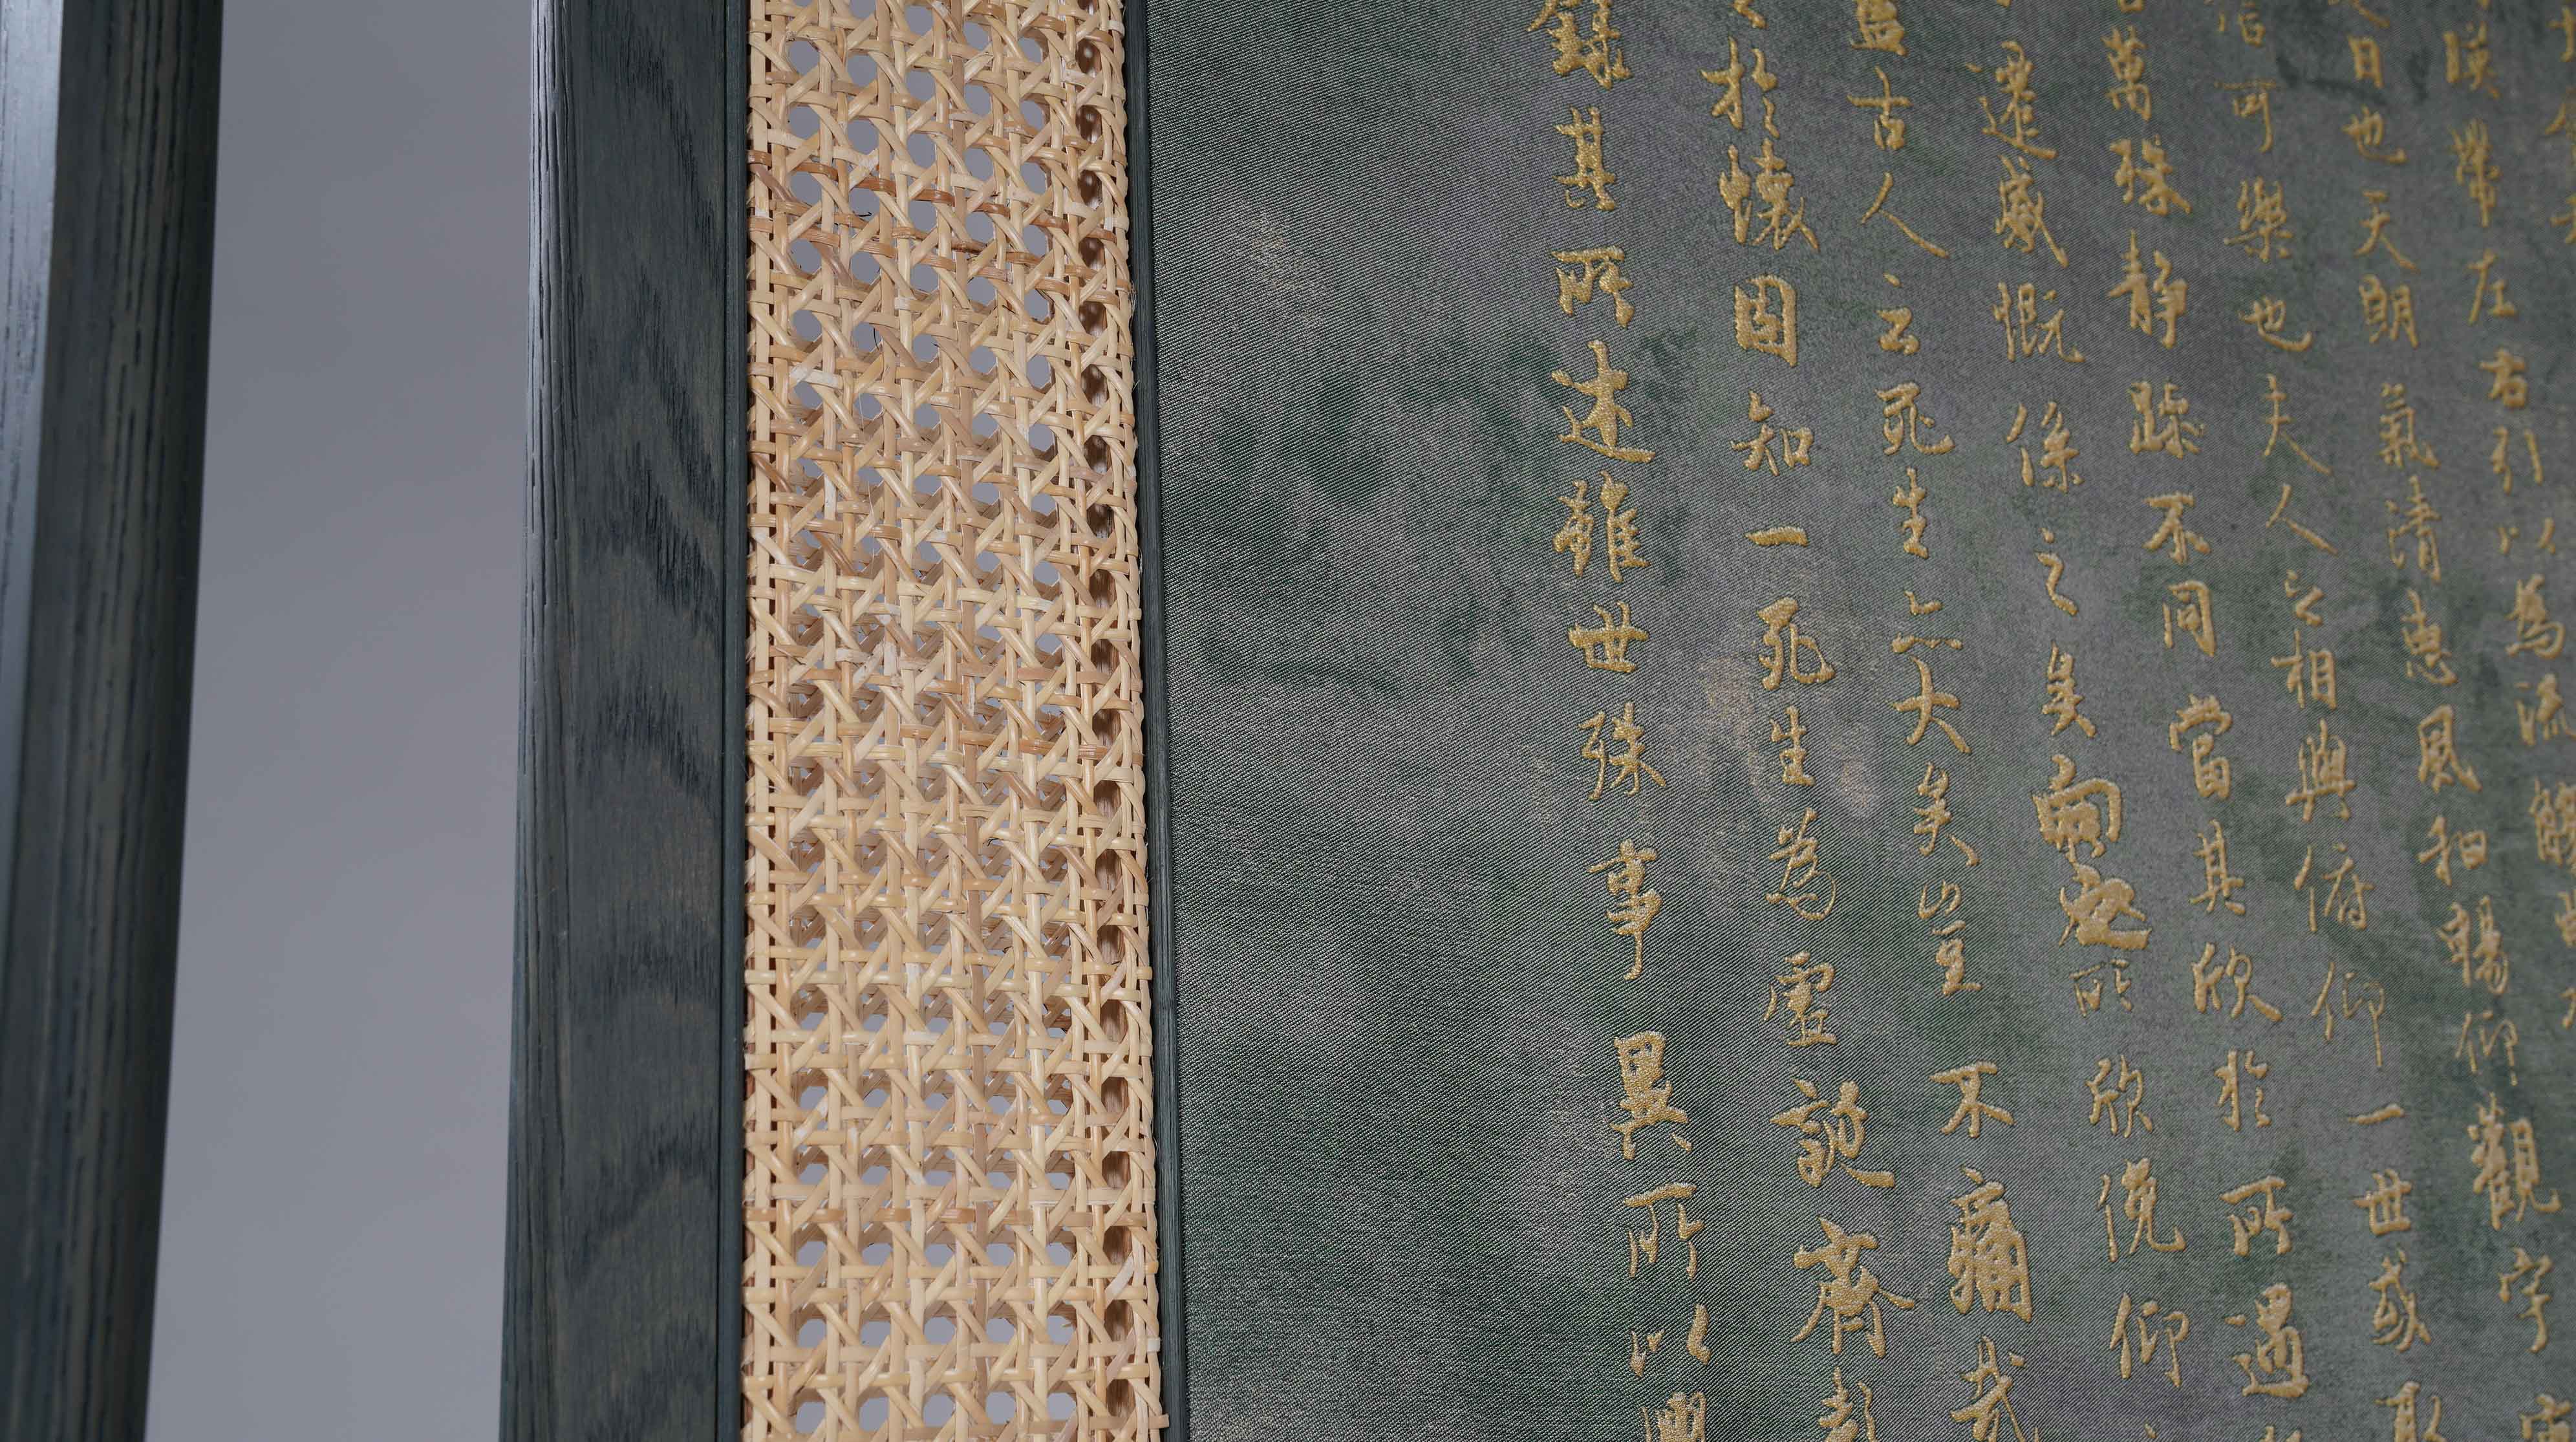 帶左右引以為流觴
日也天朗氣清惠風和暢仰觀宇
可樂也夫人之相與俯仰一世或取
萬殊靜躁不同當其欣於所遇
遷感慨係之矣向之所欣俛仰
古人云死生亦大矣豈不痛哉
於懷固知一死生為虛誕齊彭
錄其所述雖世殊事異所以興